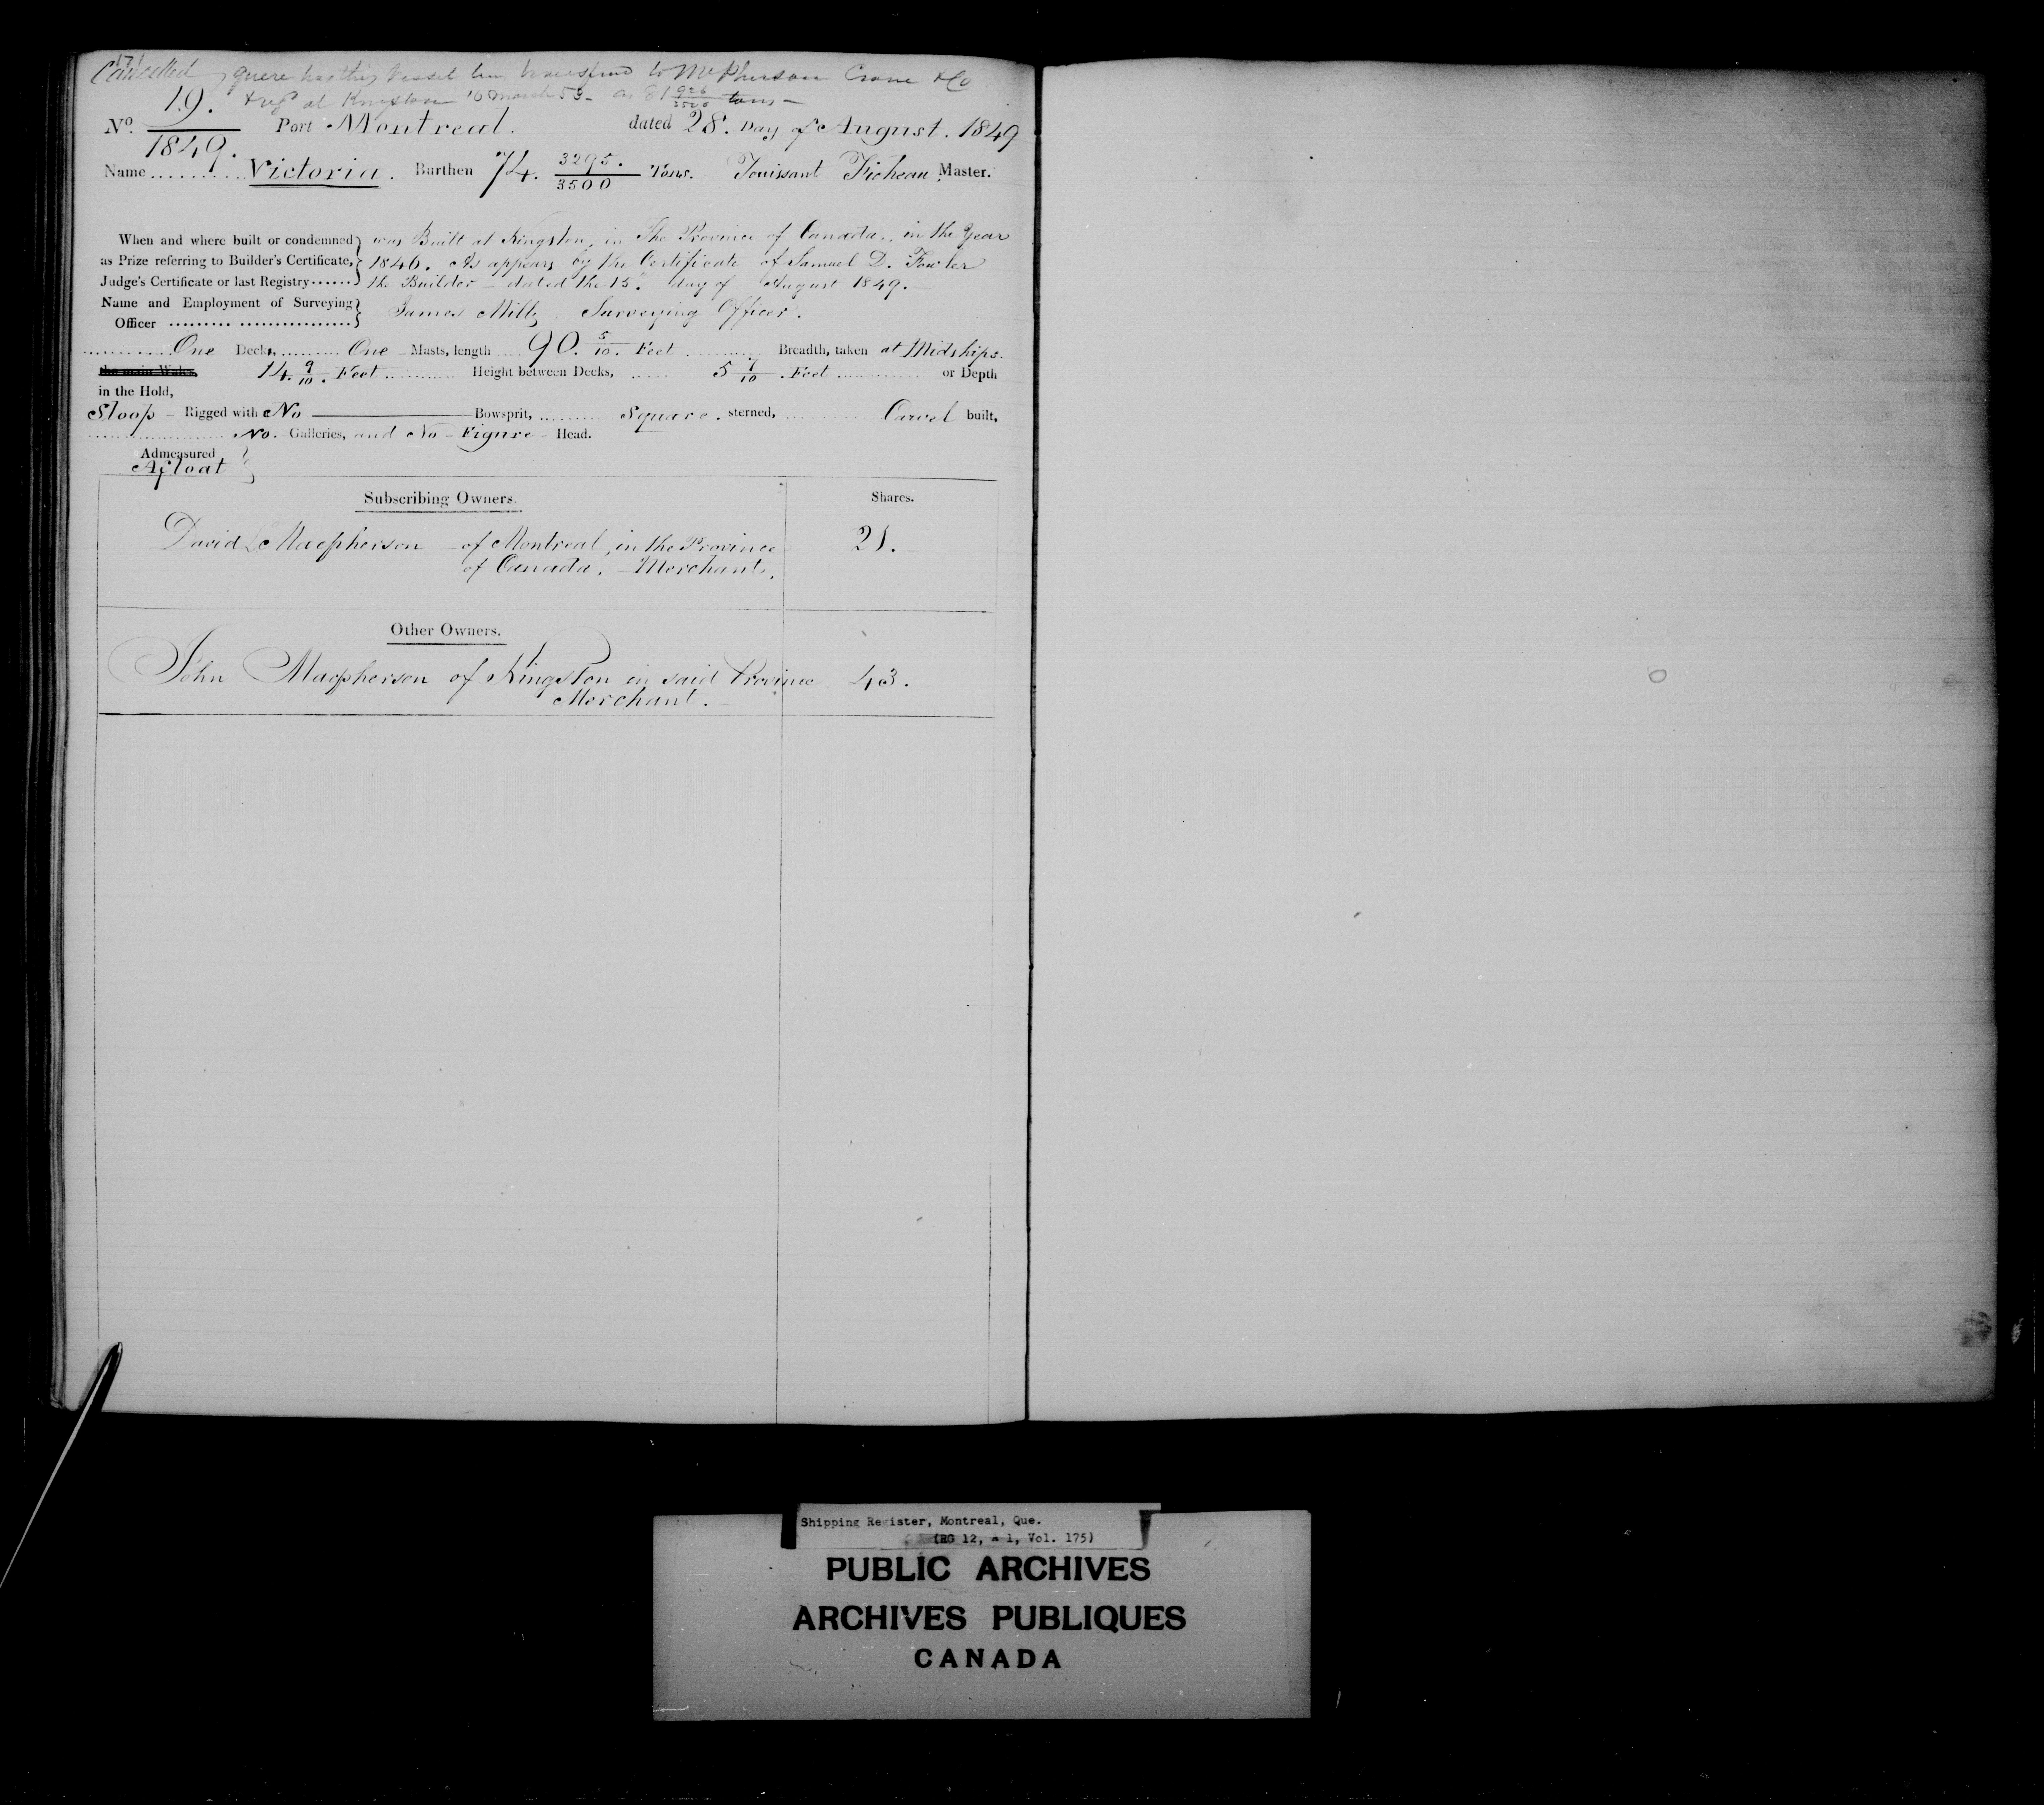 171
Cancelled quere has this Vessel been transferred to McPherson Crane & Co
& regd at Kingston 10 March 53 - as 81 926/3500 tons -
No. 19./1849. Port Montreal. dated 28. Day of August. 1849
Name .......... Victoria. Burthen 74. 3295./3500 Tons. Touissant Master.
When and where built or condemned } was Built at Kingston, in The Province of Canada, in the Year
as Prize referring to Builder's Certificate, } 1846. As appears by the Certificate of Samuel D. Fowler
Judge's Certificate or last Registry...... } the Builder - dated the 15th day of August 1849.
Name and Employment of Surveying }
Officer ......... ................ } James Mills, Surveying Officer.
............ One Decks, ......... One - Masts, length .... 90. 5/10. Feet ............ Breadth, taken at Midships.
the main Wales, 14. 9/10. Feet ........... Height between Decks, ...... 5 7/10. Feet .............. or Depth
in the Hold,
Sloop - Rigged with No ———— Bowsprit, ......... Square. sterned, .............. Carvel built,
.................... No. Galleries, and No - Figure - Head.
Admeasured
Afloat }
Subscribing Owners. Shares.
David L Macpherson - of Montreal, in the Province 21.
of Canada, - Merchant,
Other Owners.
John Macpherson of Kingston in said Province 43.
Merchant.
Shipping Register, Montreal, Que.
(RG 12, A 1, Vol. 175)
PUBLIC ARCHIVES
ARCHIVES PUBLIQUES
CANADA